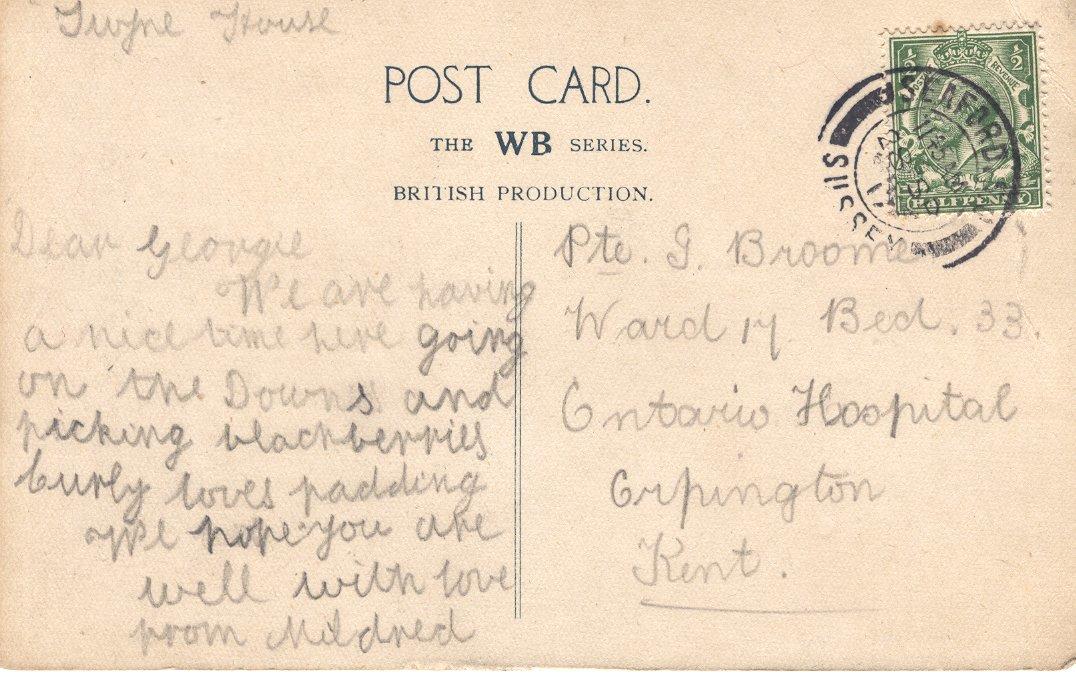 Twyne House
POST CARD.
THE WB SERIES.
BRITISH PRODUCTION.
SEAFORD
SUSSEX
HALFPENNY
Dear Georgie
We are having
a nice time here going
on the Downs and
picking blackberries
Curly loves padding
We hope you are
well with love
from Mildred
Pte. G. Broome
Ward 17 Bed. 33.
Ontario Hospital
Orpington
Kent.